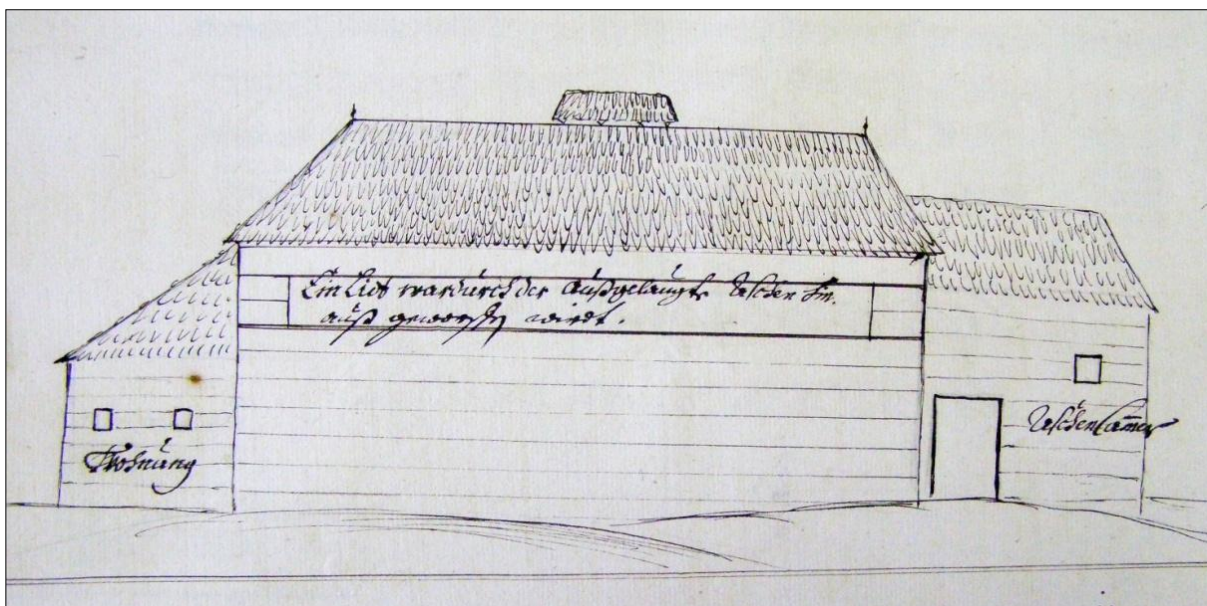 Ein Licht wardurch der Außgelaugte Aschen hin
auß geworffen wirdt.
Wohnung
Aschen Cam̄er